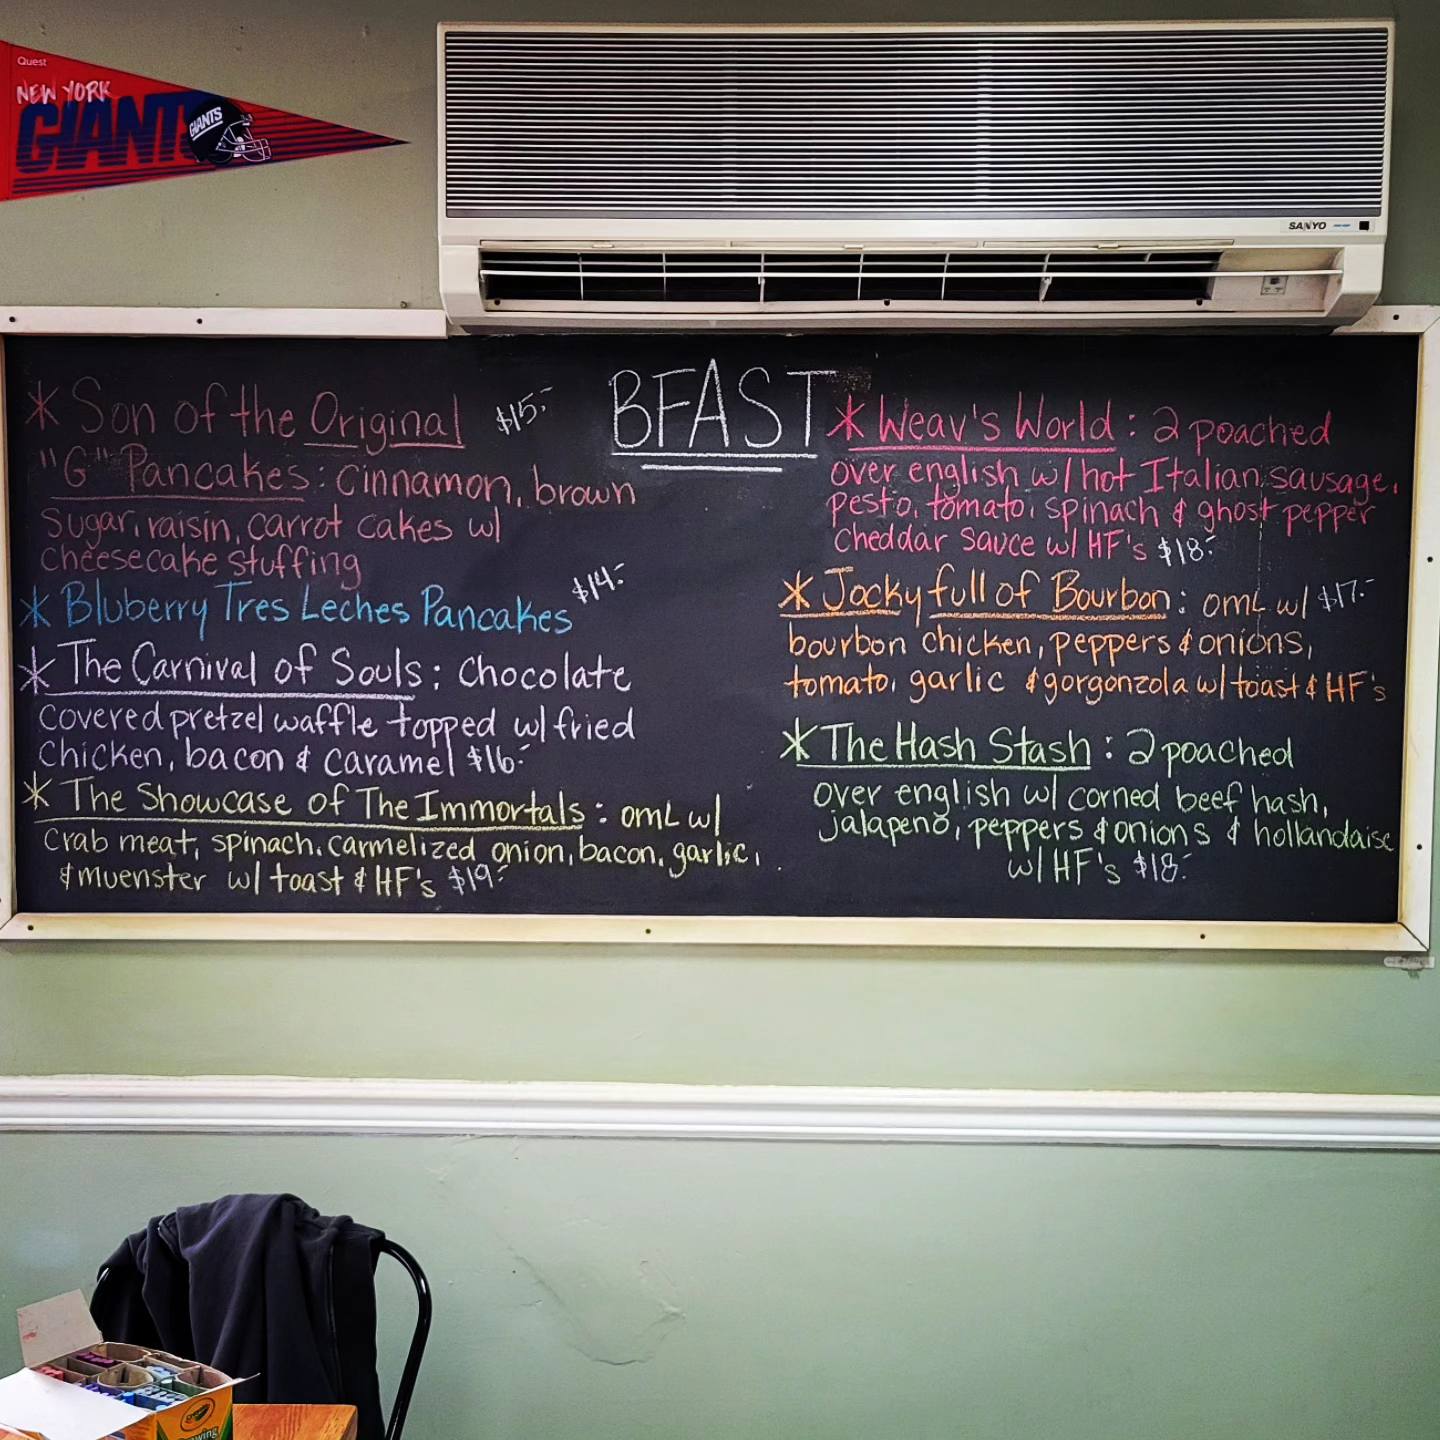 Quest
NEW YORK
GIANTS
GIANTS
SANYO
BFAST
* Son of the Original $15.-
"G" Pancakes: cinnamon, brown
sugar, raisin, carrot cakes w/
cheesecake stuffing
* Bluberry Tres Leches Pancakes $14.-
* The Carnival of Souls: chocolate
covered pretzel waffle topped w/ fried
chicken, bacon & caramel $16.-
* The Showcase of The Immortals: omL w/
crab meat, spinach, carmelized onion, bacon, garlic,
& muenster w/ toast & HF's $19.-
* Weav's World: 2 poached
over english w/ hot Italian sausage,
pesto, tomato, spinach & ghost pepper
cheddar sauce w/ HF's $18.-
* Jocky full of Bourbon: omL w/ $17.-
bourbon chicken, peppers & onions,
tomato, garlic & gorgonzola w/ toast & HF's
* The Hash Stash: 2 poached
over english w/ corned beef hash,
jalapeno, peppers & onions & hollandaise
w/ HF's $18.-
Crayola